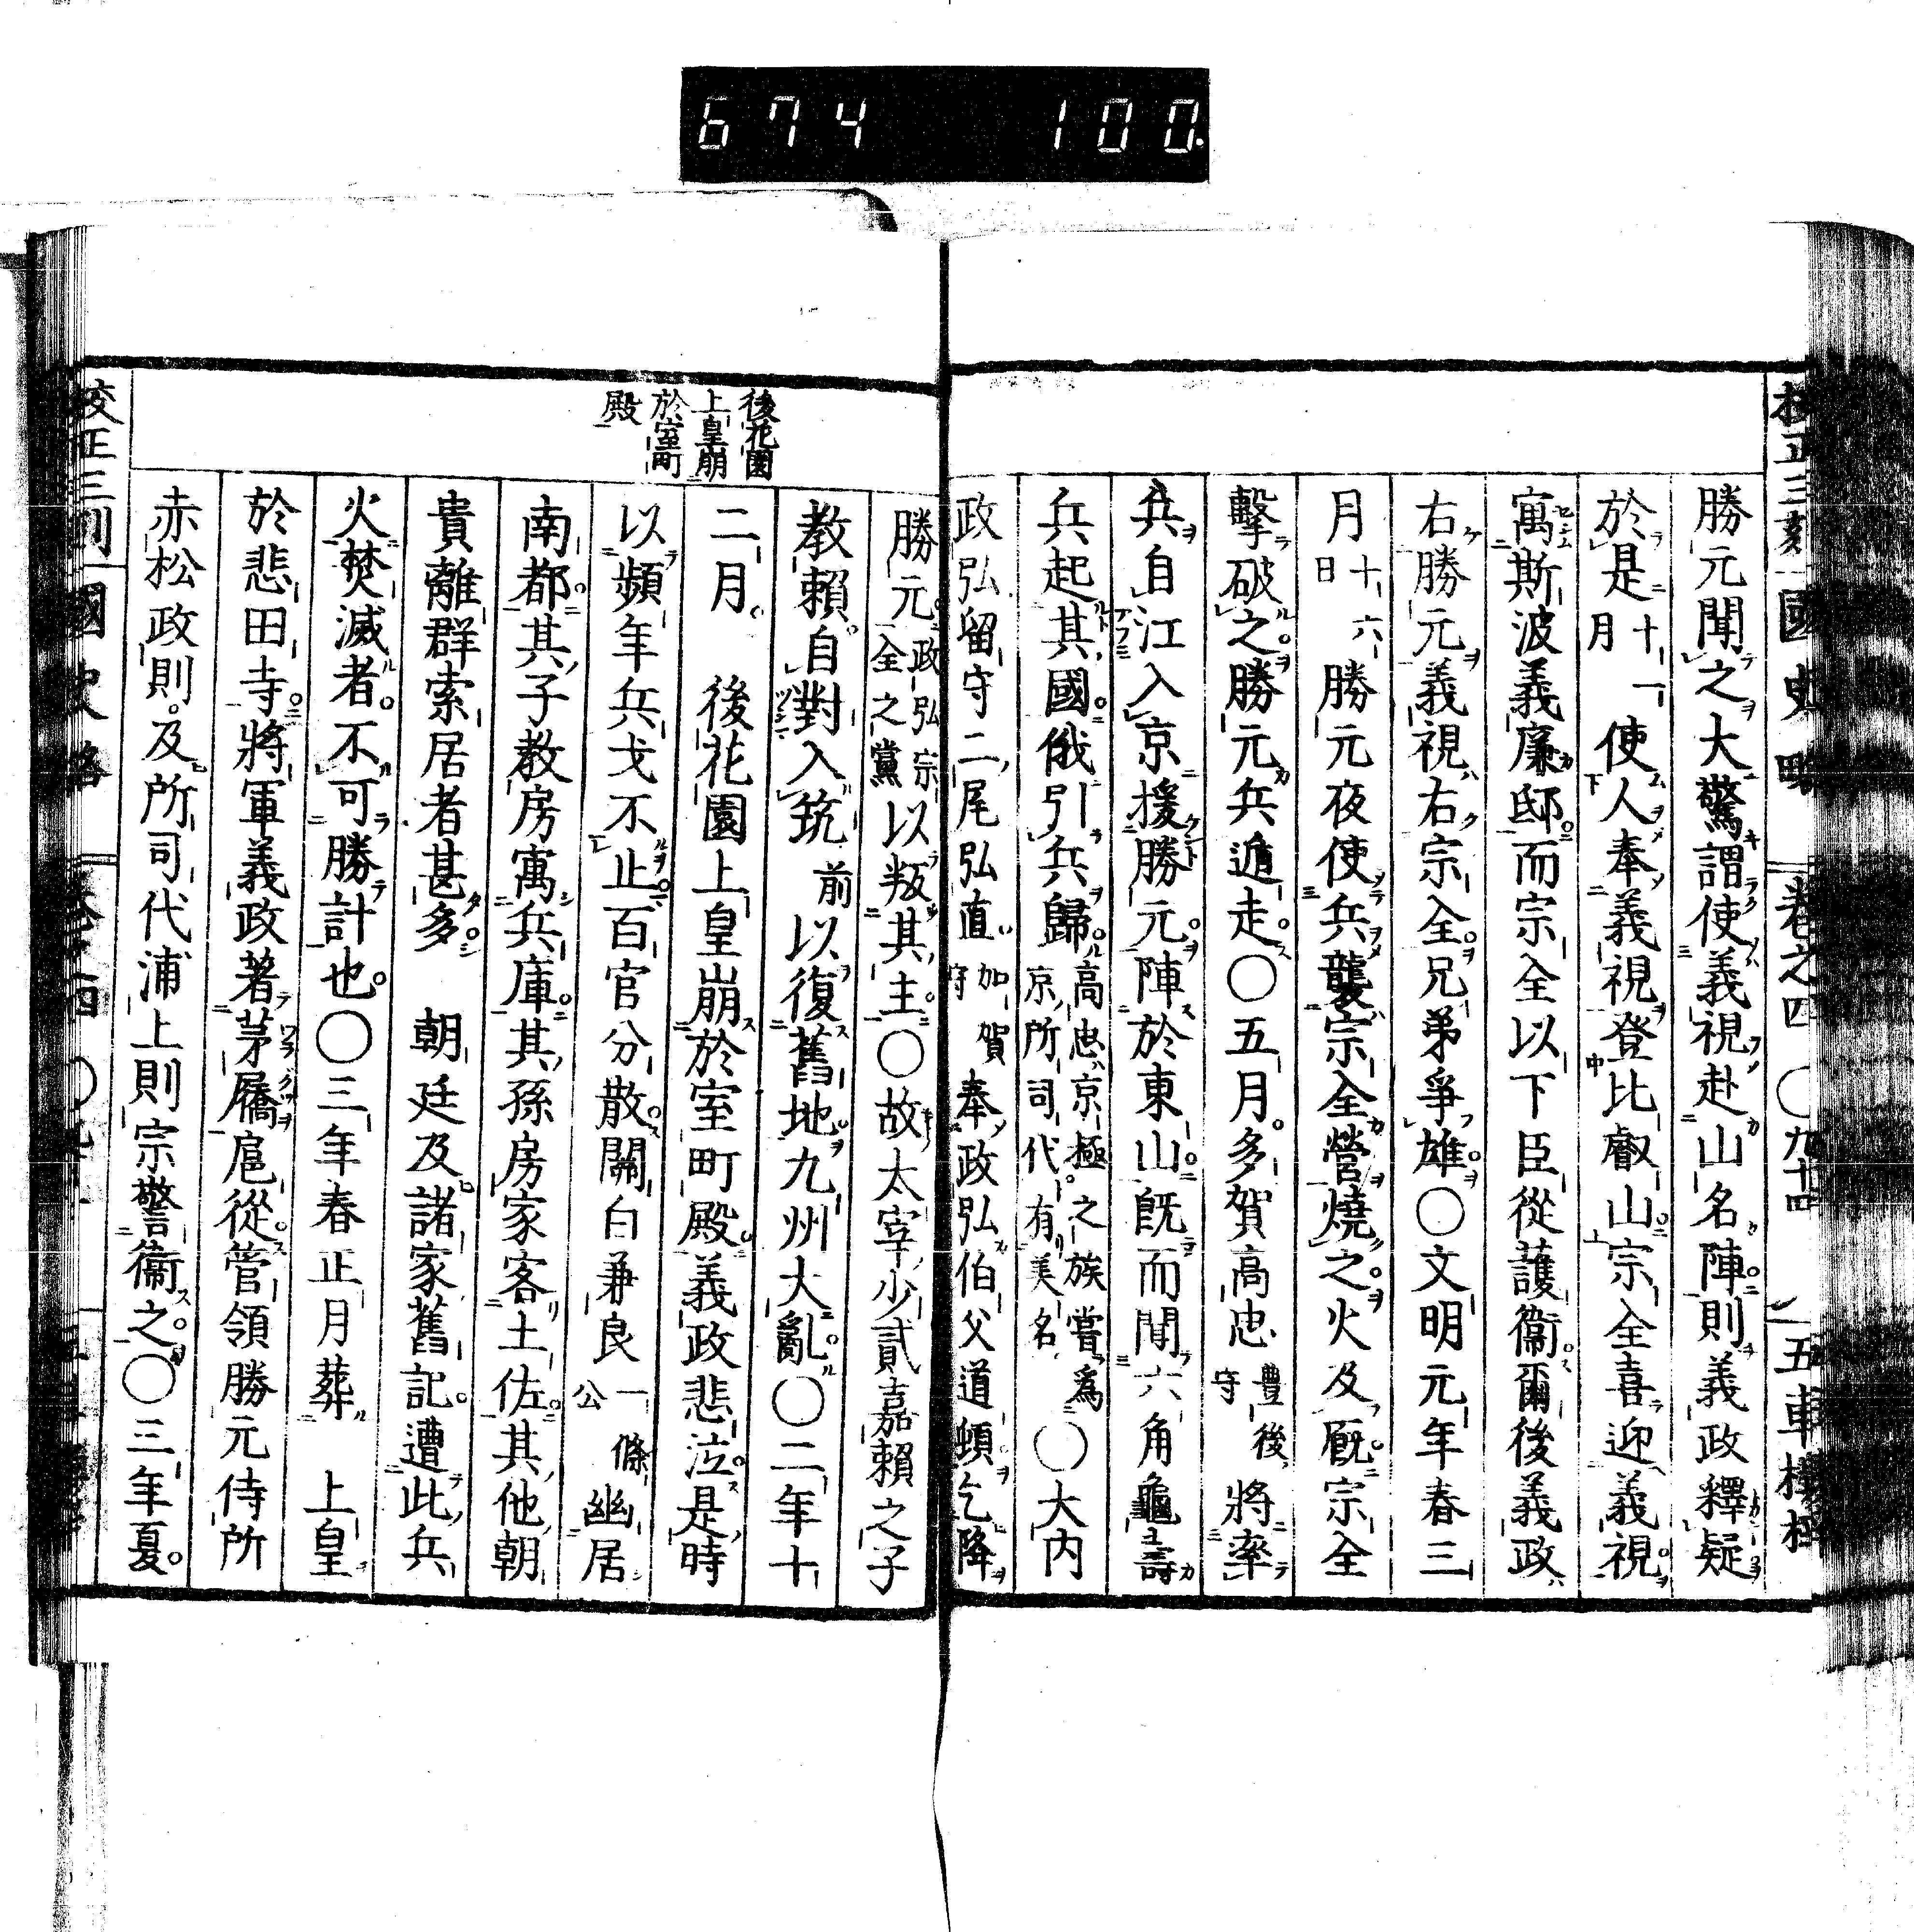 674 100
校正三刻 國史略 卷之四 〇九十四 五車樓梓
勝元聞之大驚謂使義視赴山名陣則義政釋疑
於是十一月使人奉義視登比叡山宗全喜迎義視
寓斯波義廉邸而宗全以下臣從護衞爾後義政
右勝元義視右宗全兄弟爭雄〇文明元年春三
月十六日勝元夜使兵襲宗全營燒之火及厩宗全
擊破之勝元兵遁走〇五月多賀高忠豐後守將率
兵自江入京援勝元陣於東山既而聞六角龜壽
兵起其國俄引兵歸高忠京極之族嘗爲京所司代有美名〇大內
政弘留守二尾弘直加賀守奉政弘伯父道頓乞降
後花園
上皇崩
於室町
殿
勝元政弘宗全之黨以叛其主〇故太宰少貳嘉賴之子
教賴自對入筑前以復舊地九州大亂〇二年十
二月 後花園上皇崩於室町殿義政悲泣是時
以頻年兵戈不止百官分散關白兼良一條公幽居
南都其子教房寓兵庫其孫房家客土佐其他朝
貴離群索居者甚多 朝廷及諸家舊記遭此兵
火焚滅者不可勝計也〇三年春正月葬 上皇
於悲田寺將軍義政著茅屩扈從管領勝元侍所
赤松政則及所司代浦上則宗警衞之〇三年夏
校正三刻 國史略